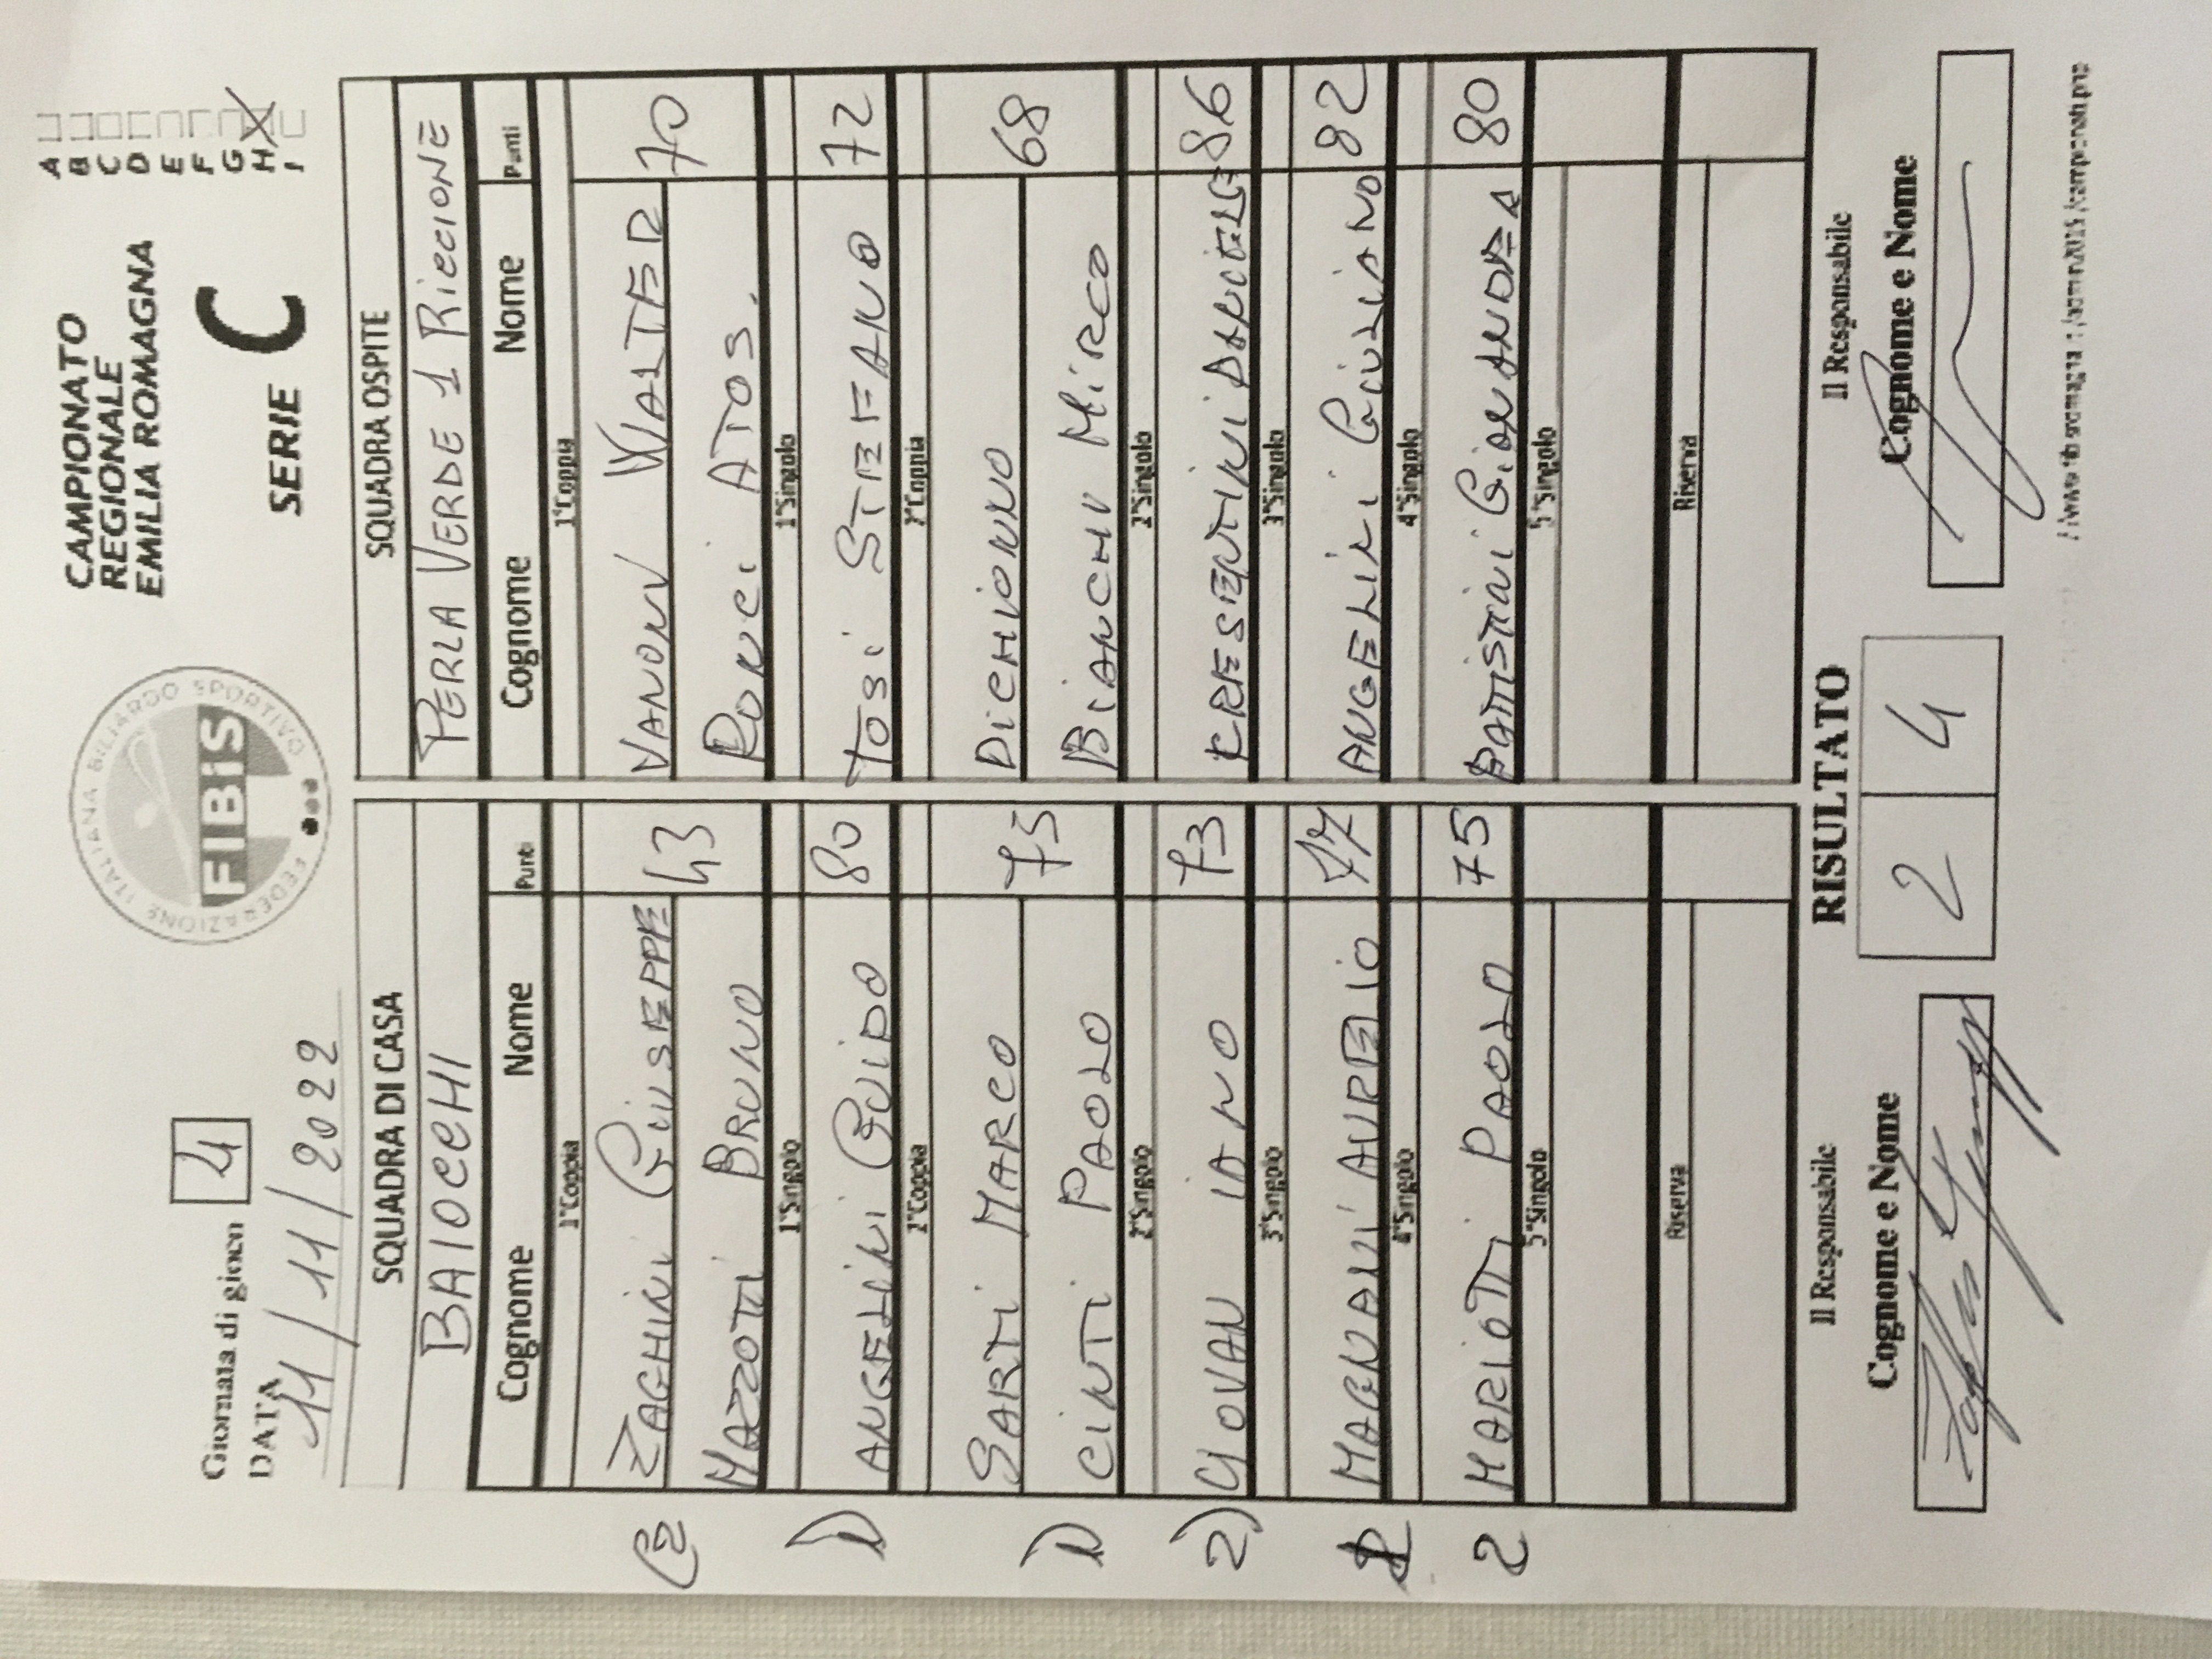 Giornata di gioco 4
DATA
11/11/2022
FEDERAZIONE ITALIANA BILIARDO SPORTIVO
FIBiS
CAMPIONATO
REGIONALE
EMILIA ROMAGNA
SERIE C
A
B
C
D
E
F
G
H X
I
SQUADRA DI CASA SQUADRA OSPITE
BAIOCCHI PERLA VERDE 1 RICCIONE
Cognome Nome Punti Cognome Nome Punti
1°Coppia 1°Coppia
ZAGHINI GIUSEPPE VANONI WALTER
C2 43 70
MAZZOTTI BRUNO PONCI ATOS.
1°Singolo 1°Singolo
1) ANGELINI GUIDO 80 TOSI STEFANO 72
2°Coppia 2°Coppia
SARTI MARCO DICHIONNO
1) 75 68
CINTI PAOLO BIANCHI MIRCO
2°Singolo 2°Singolo
2) GIOVAN IANO 73 86
3°Singolo 3°Singolo
MAGNANI AURELIO ANGELINI GIULIANO 82
4°Singolo 4°Singolo
2 MARIOTTI PAOLO 75 BATTISTINI GIONANDREA 80
5°Singolo 5°Singolo
Riserva Riserva
Il Responsabile RISULTATO Il Responsabile
Cognome e Nome 2 4 Cognome e Nome